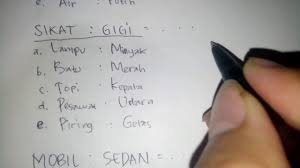 e. Air : Putih
SIKAT : GIGI = . . . .
a. Lampu : Minyak
b. Batu : Merah
c. Topi : Kepala
d. Pesawat : Udara
e. Piring : Gelas
MOBIL : SEDAN = . . .